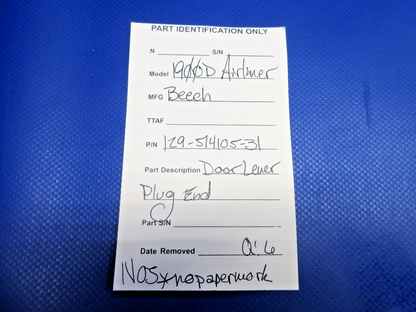 PART IDENTIFICATION ONLY
N ____________ S/N ____________
Model 1900D Airliner
MFG Beech
TTAF ____________
P/N 129-514105-31
Part Description Door Lever
Plug End
Part S/N ____________
Date Removed ____________ Q: 6
NOS * no paperwork